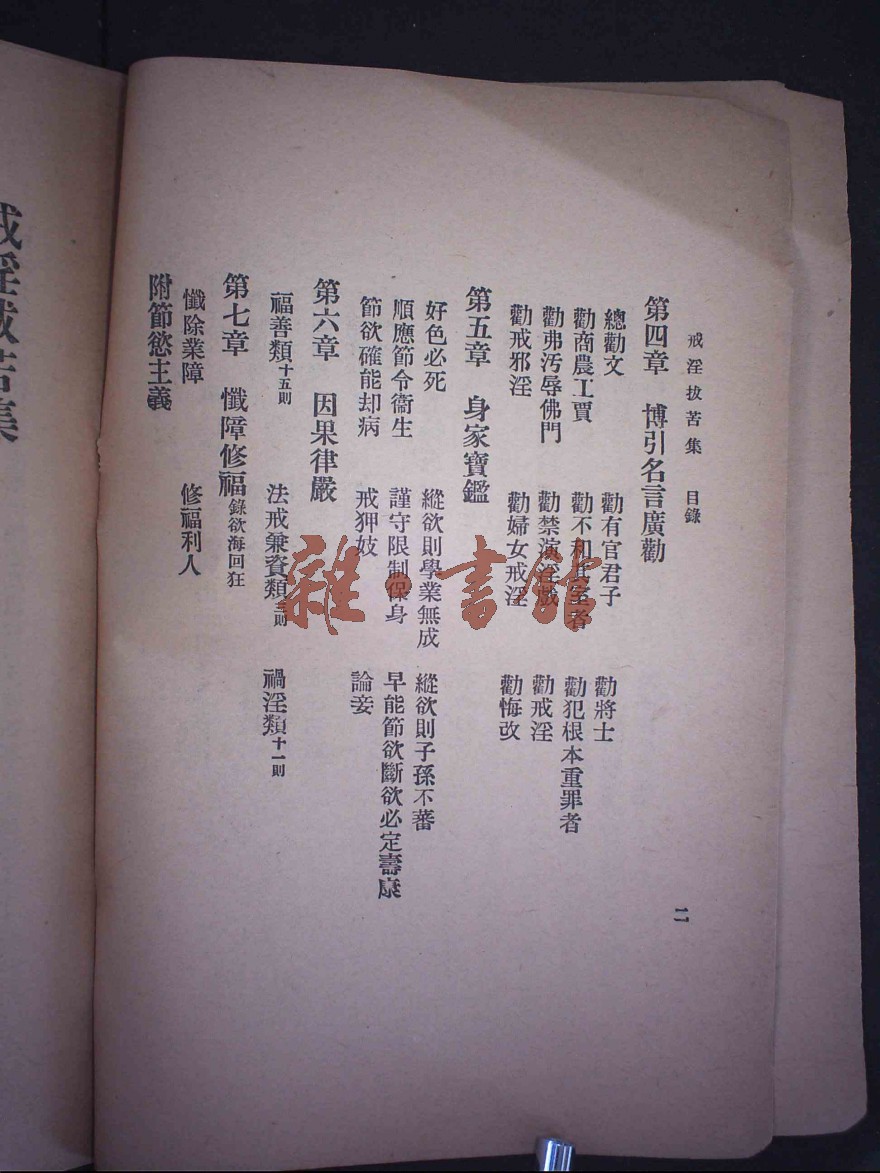 戒淫拔苦集　目錄
二
第四章　博引名言廣勸
總勸文　勸有官君子　勸將士
勸商農工賈　勸不和其室者　勸犯根本重罪者
勸弗汚辱佛門　勸禁演淫戲　勸戒淫
勸戒邪淫　勸婦女戒淫　勸悔改
第五章　身家寶鑑
好色必死　縱欲則學業無成　縱欲則子孫不蕃
順應節令衞生　謹守限制保身　早能節欲斷欲必定壽康
節欲確能却病　戒狎妓　論妾
第六章　因果律嚴
福善類十五則　法戒兼資類三則　禍淫類十一則
第七章　懺障修福錄欲海回狂
懺除業障　修福利人
附節慾主義
戒淫拔苦集
雜·書館